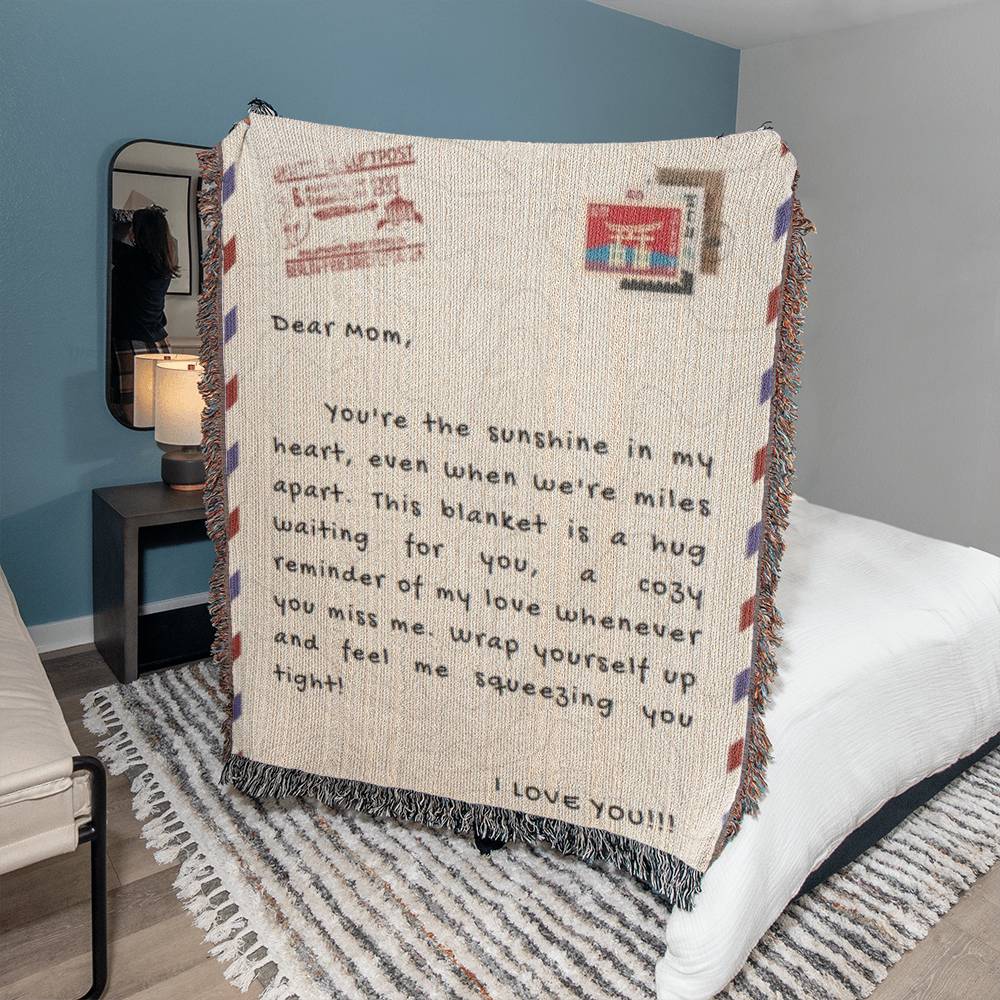 Dear Mom,
you're the sunshine in my
heart, even when we're miles
apart. This blanket is a hug
waiting for you, a cozy
reminder of my love whenever
you miss me. Wrap yourself up
and feel me squeezing you
tight!
I LOVE YOU!!!